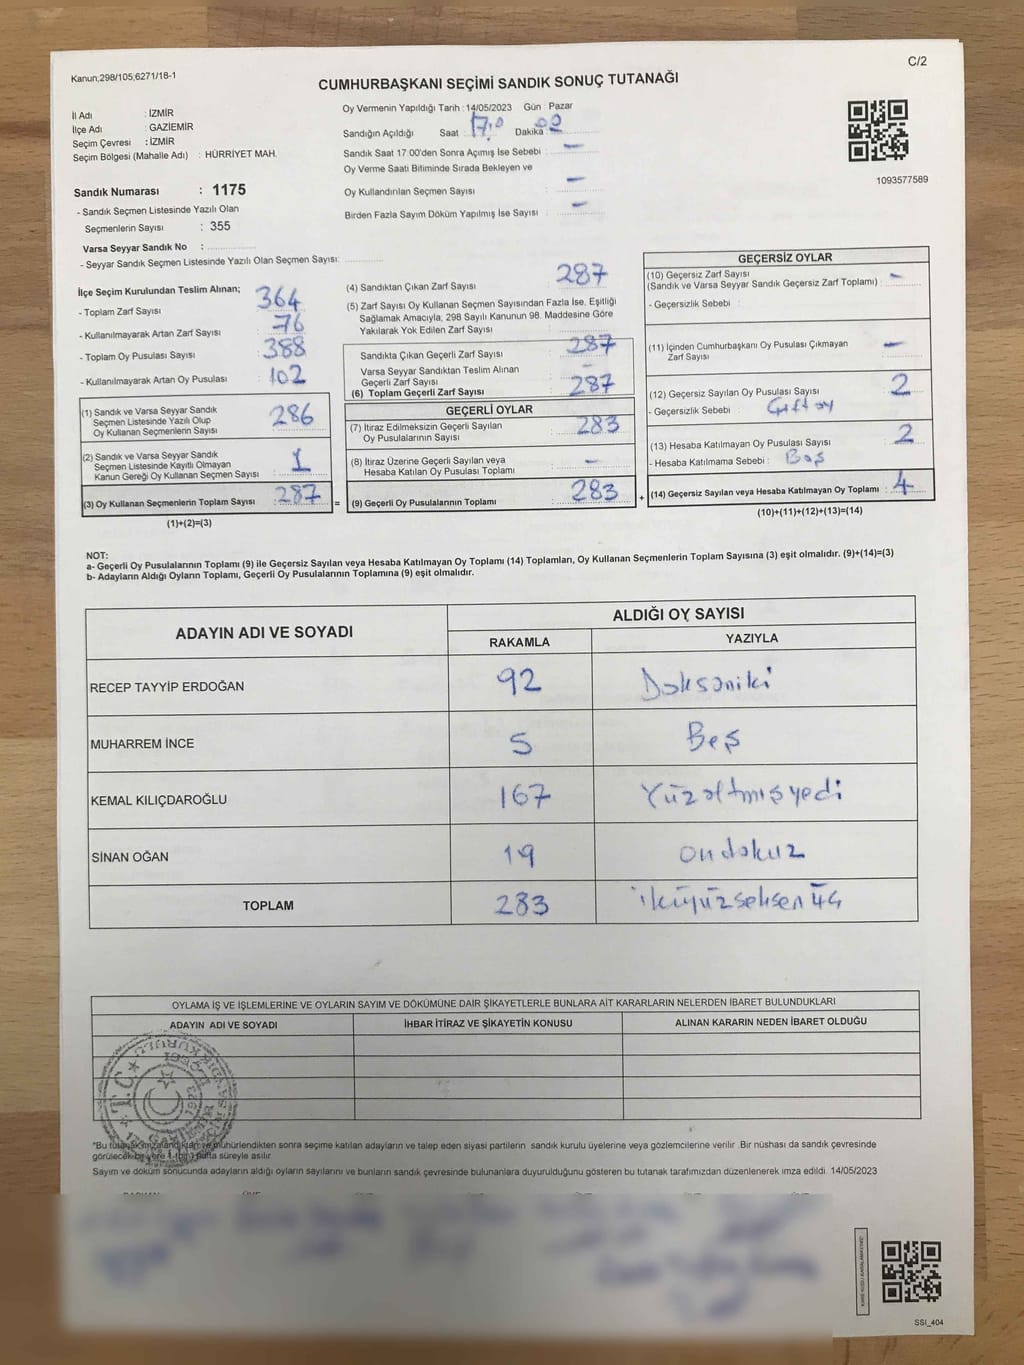 C/2
Kanun,298/105,6271/18-1
CUMHURBAŞKANI SEÇİMİ SANDIK SONUÇ TUTANAĞI
İl Adı : İZMİR
İlçe Adı : GAZİEMİR
Seçim Çevresi : İZMİR
Seçim Bölgesi (Mahalle Adı) : HÜRRİYET MAH.
Sandık Numarası : 1175
- Sandık Seçmen Listesinde Yazılı Olan
Seçmenlerin Sayısı : 355
Varsa Seyyar Sandık No :
- Seyyar Sandık Seçmen Listesinde Yazılı Olan Seçmen Sayısı:
Oy Vermenin Yapıldığı Tarih : 14/05/2023 Gün : Pazar
Sandığın Açıldığı Saat : 17.0 Dakika : 00
Sandık Saat 17:00'den Sonra Açımış İse Sebebi : –
Oy Verme Saati Bitiminde Sırada Bekleyen ve
Oy Kullandırılan Seçmen Sayısı : –
Birden Fazla Sayım Döküm Yapılmış İse Sayısı : –
1093577589
İlçe Seçim Kurulundan Teslim Alınan;
- Toplam Zarf Sayısı : 364
- Kullanılmayarak Artan Zarf Sayısı : 76
- Toplam Oy Pusulası Sayısı : 388
- Kullanılmayarak Artan Oy Pusulası : 102
(1) Sandık ve Varsa Seyyar Sandık
Seçmen Listesinde Yazılı Olup
Oy Kullanan Seçmenlerin Sayısı : 286
(2) Sandık ve Varsa Seyyar Sandık
Seçmen Listesinde Kayıtlı Olmayan
Kanun Gereği Oy Kullanan Seçmen Sayısı : 1
(3) Oy Kullanan Seçmenlerin Toplam Sayısı : 287 =
(1)+(2)=(3)
(4) Sandıktan Çıkan Zarf Sayısı : 287
(5) Zarf Sayısı Oy Kullanan Seçmen Sayısından Fazla İse, Eşitliği
Sağlamak Amacıyla; 298 Sayılı Kanunun 98. Maddesine Göre
Yakılarak Yok Edilen Zarf Sayısı :
Sandıkta Çıkan Geçerli Zarf Sayısı : 287
Varsa Seyyar Sandıktan Teslim Alınan
Geçerli Zarf Sayısı : –
(6) Toplam Geçerli Zarf Sayısı : 287
GEÇERLİ OYLAR
(7) İtiraz Edilmeksizin Geçerli Sayılan
Oy Pusulalarının Sayısı : 283
(8) İtiraz Üzerine Geçerli Sayılan veya
Hesaba Katılan Oy Pusulası Toplamı : –
(9) Geçerli Oy Pusulalarının Toplamı : 283 +
GEÇERSİZ OYLAR
(10) Geçersiz Zarf Sayısı
(Sandık ve Varsa Seyyar Sandık Geçersiz Zarf Toplamı) : –
- Geçersizlik Sebebi :
(11) İçinden Cumhurbaşkanı Oy Pusulası Çıkmayan
Zarf Sayısı : –
(12) Geçersiz Sayılan Oy Pusulası Sayısı : 2
- Geçersizlik Sebebi : Çift oy
(13) Hesaba Katılmayan Oy Pusulası Sayısı : 2
- Hesaba Katılmama Sebebi : Boş
(14) Geçersiz Sayılan veya Hesaba Katılmayan Oy Toplamı : 4
(10)+(11)+(12)+(13)=(14)
NOT:
a- Geçerli Oy Pusulalarının Toplamı (9) ile Geçersiz Sayılan veya Hesaba Katılmayan Oy Toplamı (14) Toplamları, Oy Kullanan Seçmenlerin Toplam Sayısına (3) eşit olmalıdır. (9)+(14)=(3)
b- Adayların Aldığı Oyların Toplamı, Geçerli Oy Pusulalarının Toplamına (9) eşit olmalıdır.
ADAYIN ADI VE SOYADI ALDIĞI OY SAYISI
RAKAMLA YAZIYLA
RECEP TAYYİP ERDOĞAN 92 Doksaniki
MUHARREM İNCE 5 Beş
KEMAL KILIÇDAROĞLU 167 Yüzaltmışyedi
SİNAN OĞAN 19 ondokuz
TOPLAM 283 ikiyüzseksenüç
OYLAMA İŞ VE İŞLEMLERİNE VE OYLARIN SAYIM VE DÖKÜMÜNE DAİR ŞİKAYETLERLE BUNLARA AİT KARARLARIN NELERDEN İBARET BULUNDUKLARI
ADAYIN ADI VE SOYADI İHBAR İTİRAZ VE ŞİKAYETİN KONUSU ALINAN KARARIN NEDEN İBARET OLDUĞU
*Bu tutanak imzalandıktan ve mühürlendikten sonra seçime katılan adayların ve talep eden siyasi partilerin sandık kurulu üyelerine veya gözlemcilerine verilir .Bir nüshası da sandık çevresinde
görülecek bir yere 1 (bir) hafta süreyle asılır
Sayım ve döküm sonucunda adayların aldığı oyların sayılarını ve bunların sandık çevresinde bulunanlara duyurulduğunu gösteren bu tutanak tarafımızdan düzenlenerek imza edildi. 14/05/2023
SSI_404